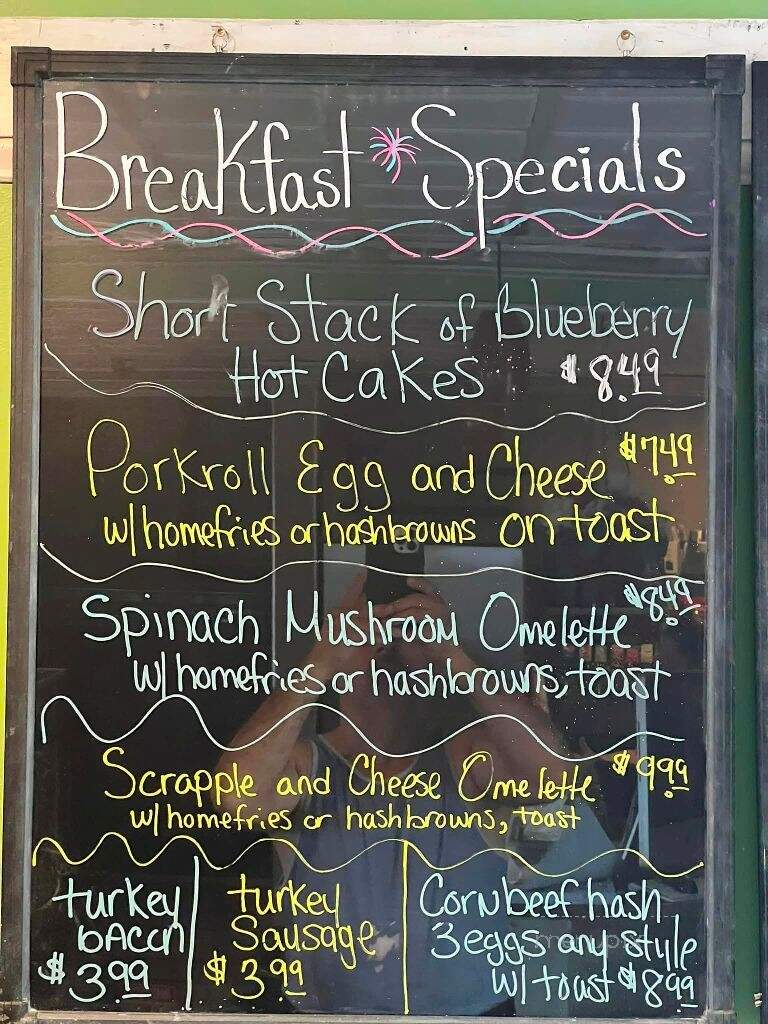 Breakfast Specials
Short Stack of Blueberry
Hot Cakes $8.49
Porkroll Egg and Cheese $7.49
w/homefries or hashbrowns on toast
Spinach Mushroom Omelette $8.49
w/homefries or hashbrowns, toast
Scrapple and Cheese Omelette $9.99
w/homefries or hashbrowns, toast
turkey
bAcon
$3.99
turkey
Sausage
$3.99
Cornbeef hash
3eggs any style
w/toast $8.99